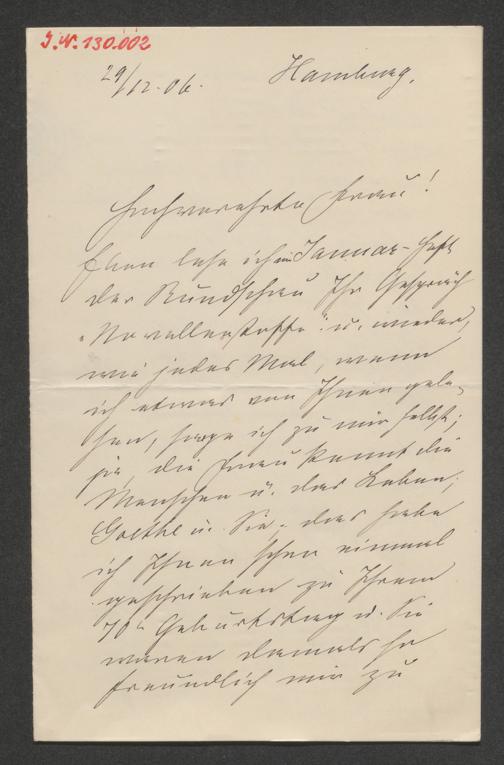 J.N. 130.002
29/12.06. Hamburg.
Hochverehrte Frau!
Eben lese ich im Januar-Heft
der Rundschau Ihr Gespräch
„Novellenstoffe" u. wieder,
wie jedes Mal, wenn
ich etwas von Ihnen gele-
sen, sage ich zu mir selbst;
ja, die Frau kennt die
Menschen u. das Leben;
Goethe u. Sie, das habe
ich Ihnen schon einmal
geschrieben zu Ihrem
70ten Geburtstag u. Sie
waren damals so
freundlich mir zu